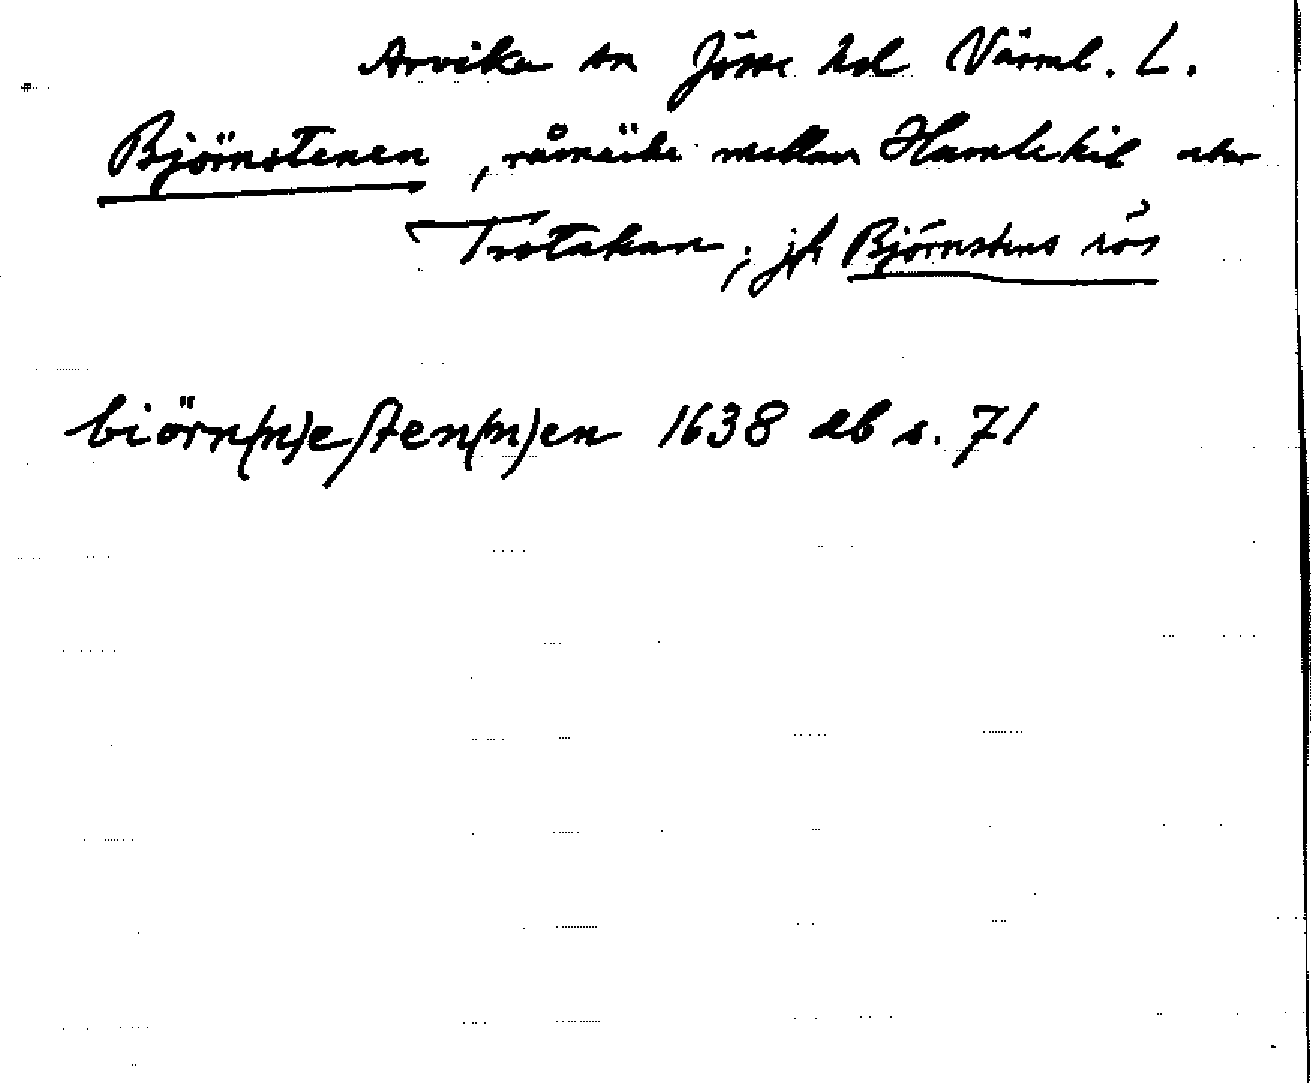 Arvika sn Jösse hd Värml. L.
Björnstenen, råmärke mellan Hambekil
Trotakan; jfr Björnstens rös
biörn(n)e/ten(n)en 1638 db s. 71